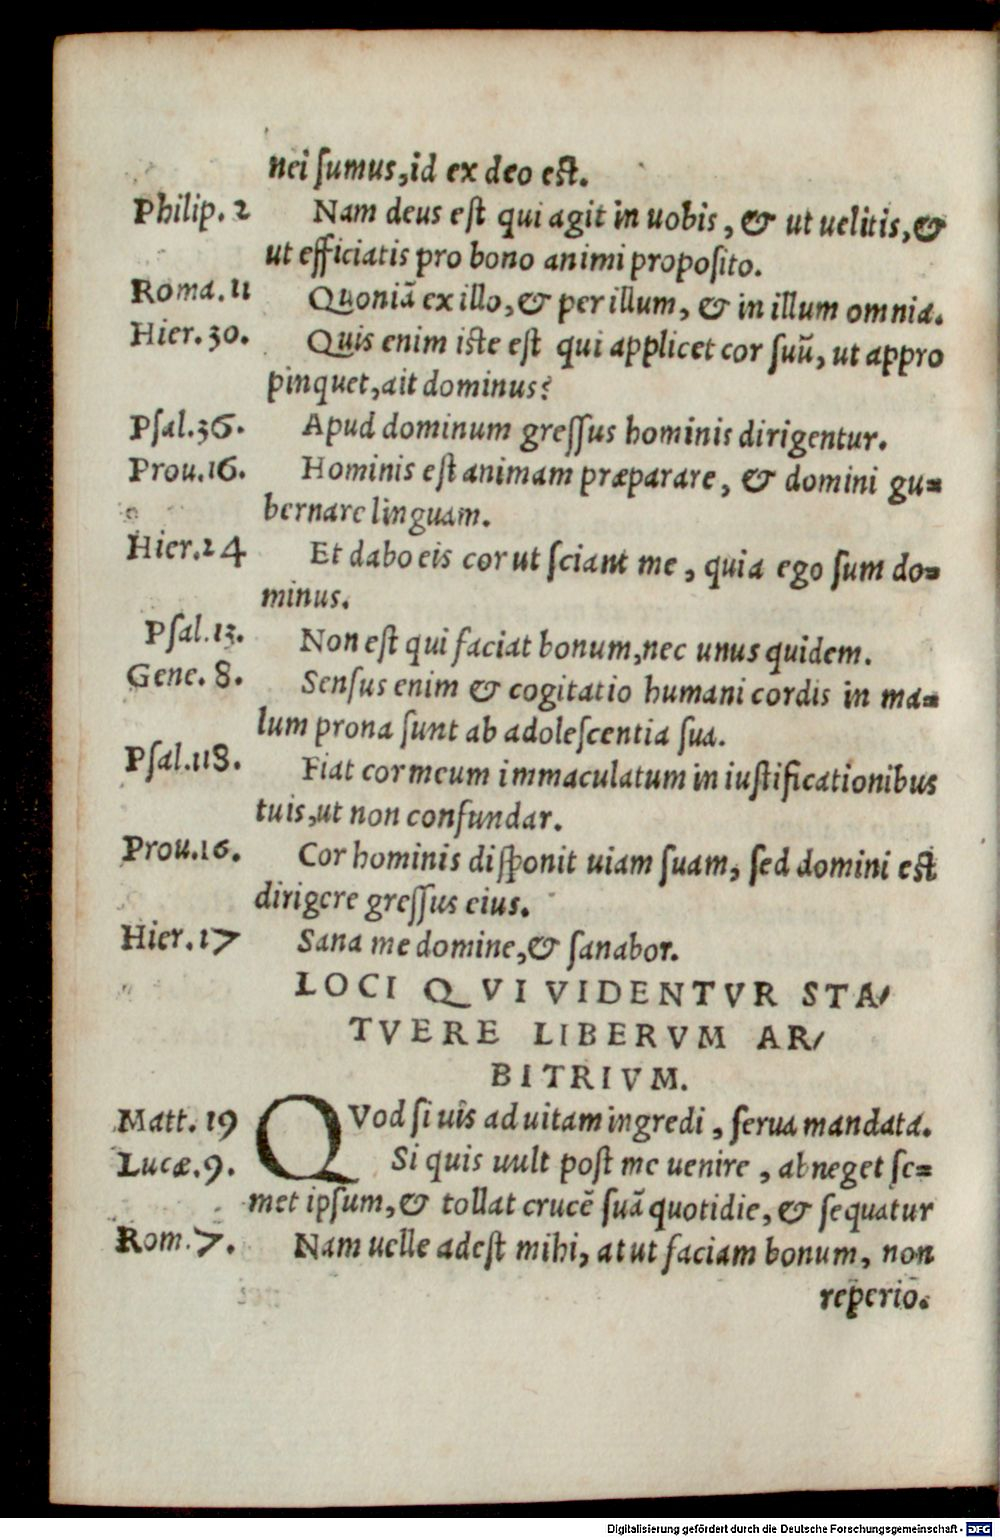 nei ſumus, id ex deo eſt.
Philip. 2 Nam deus eſt qui agit in uobis, & ut uelitis, &
ut efficiatis pro bono animi propoſito.
Roma. 11 Quoniā ex illo, & per illum, & in illum omnia.
Hier. 30. Quis enim iſte eſt qui applicet cor ſuū, ut appro
pinquet, ait dominus?
Pſal. 36. Apud dominum greſſus hominis dirigentur.
Prou. 16. Hominis eſt animam præparare, & domini gu=
bernare linguam.
Hier. 24 Et dabo eis cor ut ſciant me, quia ego ſum do=
minus.
Pſal. 13. Non eſt qui faciat bonum, nec unus quidem.
Gene. 8. Senſus enim & cogitatio humani cordis in ma=
lum prona ſunt ab adoleſcentia ſua.
Pſal. 118. Fiat cor meum immaculatum in iuſtificationibus
tuis, ut non confundar.
Prou. 16. Cor hominis diſponit uiam ſuam, ſed domini eſt
dirigere greſſus eius.
Hier. 17 Sana me domine, & ſanabor.
LOCI QVI VIDENTVR STA/
TVERE LIBERVM AR/
BITRIVM.
Matt. 19 QVod ſi uis ad uitam ingredi, ſerua mandata.
Lucæ. 9. Si quis uult poſt me uenire, abneget ſe=
met ipſum, & tollat crucē ſuā quotidie, & ſequatur
Rom. 7. Nam uelle adeſt mihi, at ut faciam bonum, non
reperio.
Digitalisierung gefördert durch die Deutsche Forschungsgemeinschaft - DFG